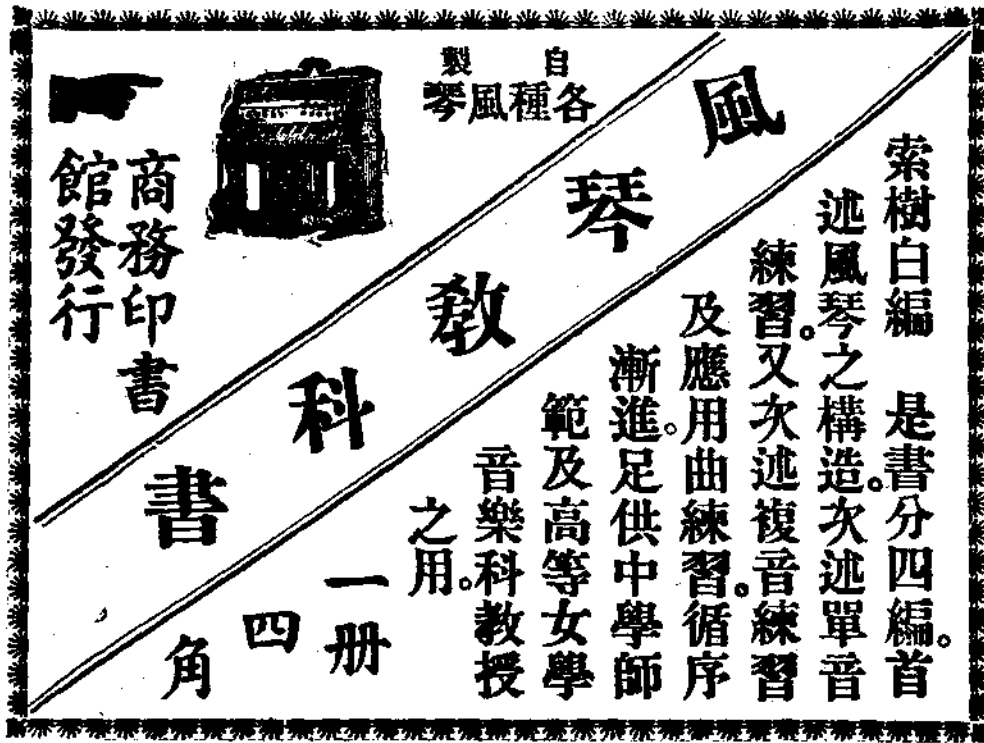 風琴教科書
索樹白編　是書分四編。首
述風琴之構造。次述單音
練習。又次述複音練習
及應用曲練習。循序
漸進。足供中學師
範及高等女學
音樂科教授
之用。
一册
四
角
自製
各種風琴
商務印書
館發行